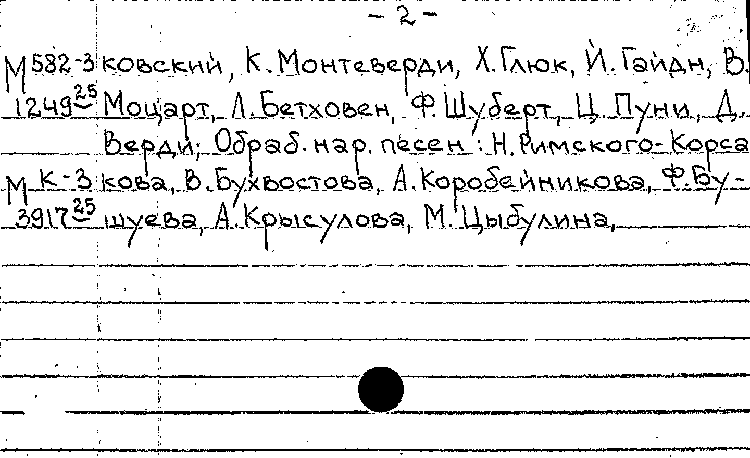 - 2 -
М 582-3 ковский, К. Монтеверди, Х. Глюк, Й. Гайдн, В.
1249 25 Моцарт, Л. Бетховен, Ф. Шуберт, Ц. Пуни, Д.
Верди; Обраб. нар. песен: Н. Римского-Корса
М К-3 кова, В. Бухвостова, А. Коробейникова, Ф. Бу-
3917 25 шуева, А. Крысулова, М. Цыбулина,